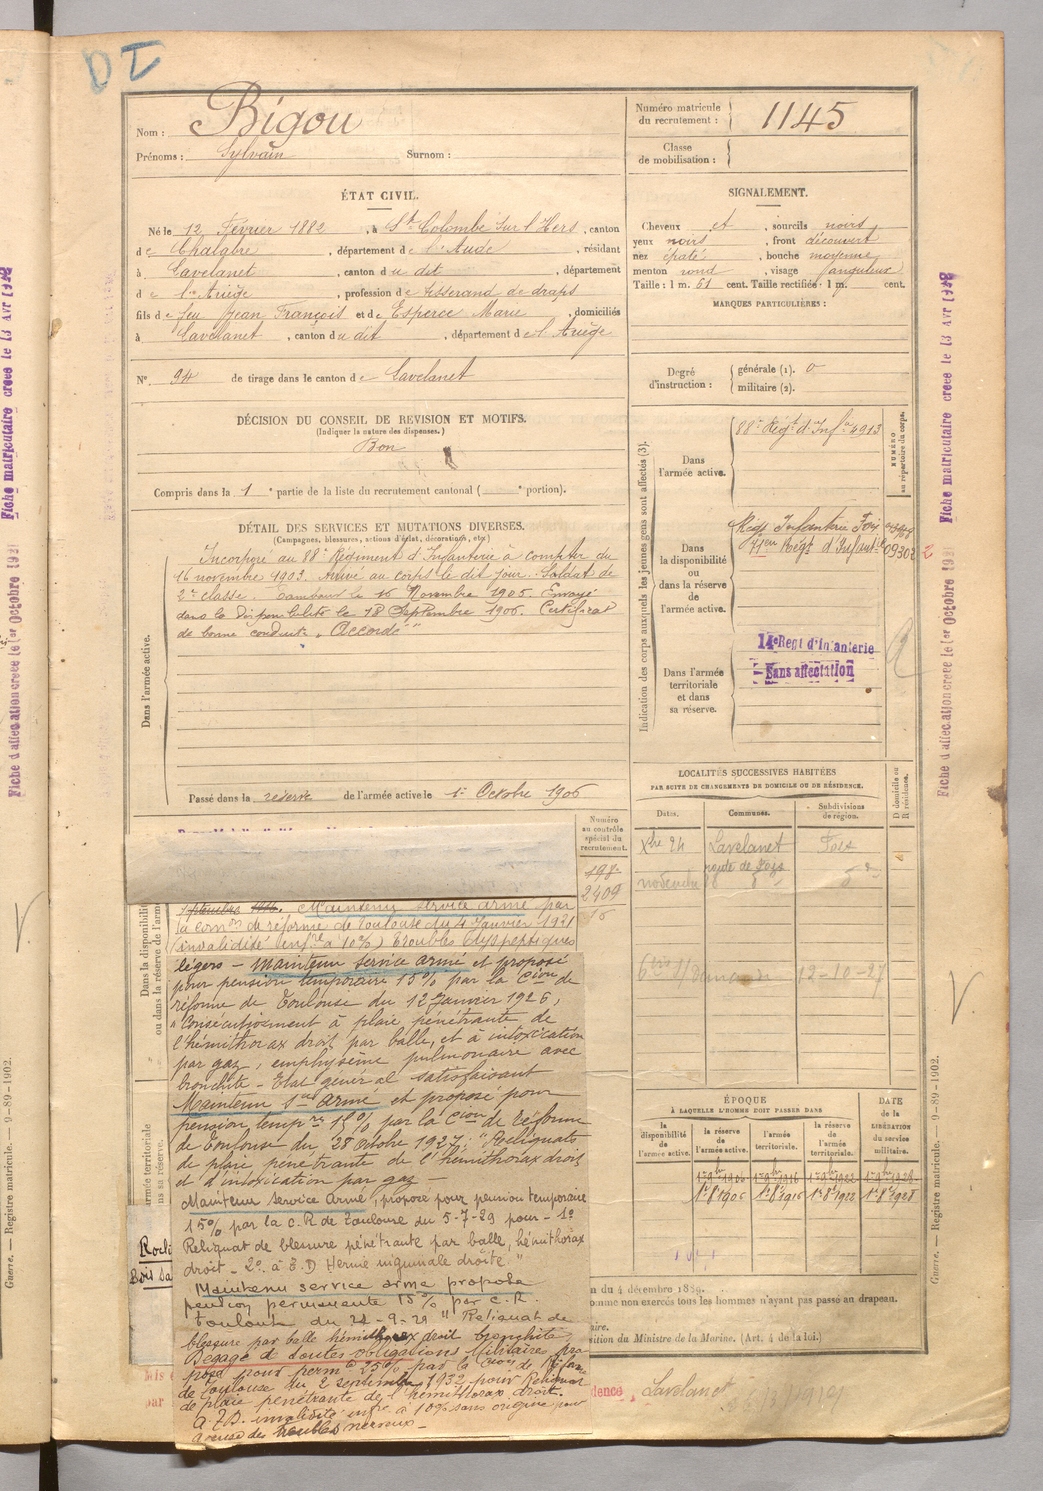 DI
Nom : Bigou
Prénoms : Sylvain Surnom :
Numéro matricule du recrutement : 1145
Classe de mobilisation :
ÉTAT CIVIL.
Né le 12 Février 1882, à Ste Colombe sur l'Hers, canton
de Chalabre, département de l'Aude, résidant
à Lavelanet, canton du dit, département
de l'Ariège, profession de tisserand de draps
fils de feu Jean François et de Esperce Marie, domiciliés
à Lavelanet, canton du dit, département de l'Ariège
N° 94 de tirage dans le canton de Lavelanet
SIGNALEMENT.
Cheveux et, sourcils noirs
yeux noirs, front découvert
nez épaté, bouche moyenne
menton rond, visage sanguleux
Taille : 1 m. 61 cent. Taille rectifiée : 1 m. cent.
MARQUES PARTICULIÈRES :
Degré d'instruction : générale (1). 0
militaire (2).
DÉCISION DU CONSEIL DE REVISION ET MOTIFS.
(Indiquer la nature des dispenses.)
Bon
Compris dans la 1e partie de la liste du recrutement cantonal ( e portion).
DÉTAIL DES SERVICES ET MUTATIONS DIVERSES.
(Campagnes, blessures, actions d'éclat, décorations, etc.)
Dans l'armée active.
Incorporé au 88e Régiment d'Infanterie à compter du
16 novembre 1903. Arrivé au corps le dit jour. Soldat de
2e classe. Tambour le 16 Novembre 1905. Envoyé
dans la Disponibilité le 18 Septembre 1906. Certificat
de bonne conduite "Accordé"
Passé dans la réserve de l'armée active le 1er Octobre 1906
Indication des corps auxquels les jeunes gens sont affectés (3).
NUMÉRO au répertoire du corps.
Dans l'armée active.
88e Régt d'Infie 4913
Dans la disponibilité ou dans la réserve de l'armée active.
Régt Infanterie Foix
Régt d'Infanterie 09302
Dans l'armée territoriale et dans sa réserve.
14e Regt d'Infanterie
Sans affectation
LOCALITÉS SUCCESSIVES HABITÉES
PAR SUITE DE CHANGEMENTS DE DOMICILE OU DE RÉSIDENCE.
Dates. Communes. Subdivisions de région. D domicile ou R résidence.
Xbre 24 Lavelanet Foix
route de Foix
12-10-27
Numéro au contrôle spécial du recrutement.
198
2409
16
Dans la disponibilité ou dans la réserve de l'armée
Maintenu service armé par
la comon de réforme de Toulouse du 4 Janvier 1921
(invalidité infre à 10%) Troubles dyspeptiques
légers - Maintenu service armé et proposé
pour pension temporaire 15% par la Cion de
réforme de Toulouse du 12 Janvier 1926,
"Consécutivement à plaie pénétrante de
l'hémithorax droit par balle, et à intoxication
par gaz, emphysème pulmonaire avec
bronchite - Etat général satisfaisant
Maintenu sce armé et proposé pour
pension tempre 15% par la Cion de Réforme
de Toulouse du 28 octobre 1927, "Reliquats
de plaie pénétrante de l'hémithorax droit
et d'intoxication par gaz -
Maintenu service armé, proposé pour pension temporaire
15% par la C.R de Toulouse du 5-7-29 pour - 1°
Reliquat de blessure pénétrante par balle, hémithorax
droit - 2° à E.D Hernie inguinale droite."
Maintenu service armé proposé
pension permanente 15% par C.R.
Toulouse du 24-9-29 "Reliquat de
blessure par balle hémithorax droit bronchite
Dégagé d toutes obligations Militaire pro
posé pour perm. 25% par la Cion de Réforme
de Toulouse du 2 septembre 1932 pour Reliquat
de plaie pénétrante de l'hémithorax droit.
invalidité infre à 10% sans origine pour
accuse des troubles nerveux -
ÉPOQUE
À LAQUELLE L'HOMME DOIT PASSER DANS
la disponibilité de l'armée active. la réserve de l'armée active. l'armée territoriale. la réserve de l'armée territoriale. DATE de la LIBÉRATION du service militaire.
1-8bre 1906 1-9bre 1916 1-9bre 1922 1-9bre 1928
1er 8bre 1906 1er 8bre 1916 1er 8bre 1922 1er 8bre 1928
armée territoriale
ns sa réserve.
Rochi
Bois sa
n du 4 décembre 1889.
omme non exercés tous les hommes n'ayant pas passé au drapeau.
aire.
sition du Ministre de la Marine. (Art. 4 de la loi.)
dence
Lavelanet
par
Guerre. — Registre matricule. — 9-89-1902.
Guerre. — Registre matricule. — 9-89-1902.
Fiche matriculaire creee le 13 Avr 1928
Fiche d'affectation creee le 1er Octobre 19
Fiche matriculaire creee le 13 Avr 1928
Fiche d'affectation creee le 1er Octobre 19